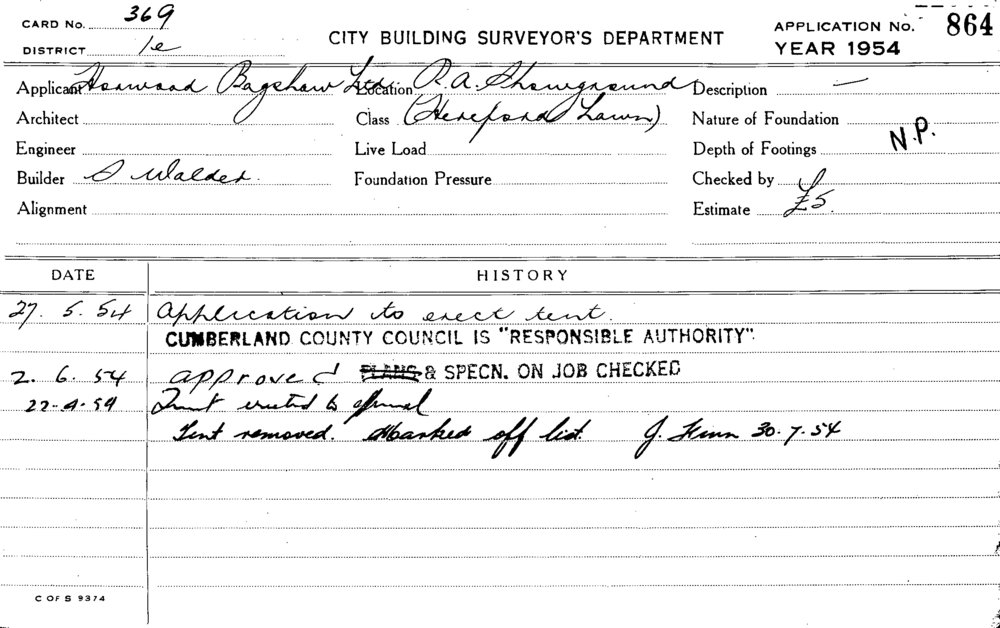 CARD No. 369
DISTRICT 1e
CITY BUILDING SURVEYOR'S DEPARTMENT
APPLICATION No. 864
YEAR 1954
Applicant Horwood Bagshaw Ltd. Location R.A. Showground Description —
Architect Class (Hereford Lawn) Nature of Foundation
Engineer Live Load Depth of Footings N.P.
Builder S Walder. Foundation Pressure Checked by
Alignment Estimate £5.
DATE HISTORY
27. 5. 54 Application to erect tent.
CUMBERLAND COUNTY COUNCIL IS "RESPONSIBLE AUTHORITY".
2. 6. 54 approved PLANS & SPECN. ON JOB CHECKED
Tent erected to
Tent removed. Marked off list. J. 30.7.54
C OF S 9374